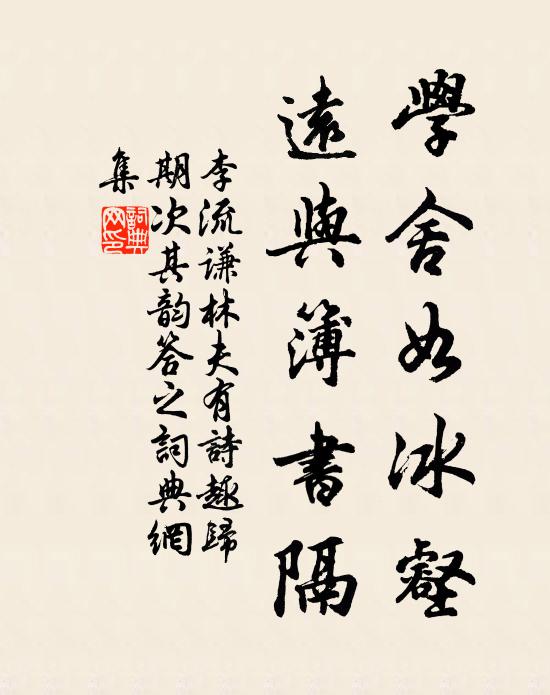 學舍如冰壑
遠與簿書隔
李流謙林夫有詩趣歸
期次其韵答之詞典網
集
詞典網印